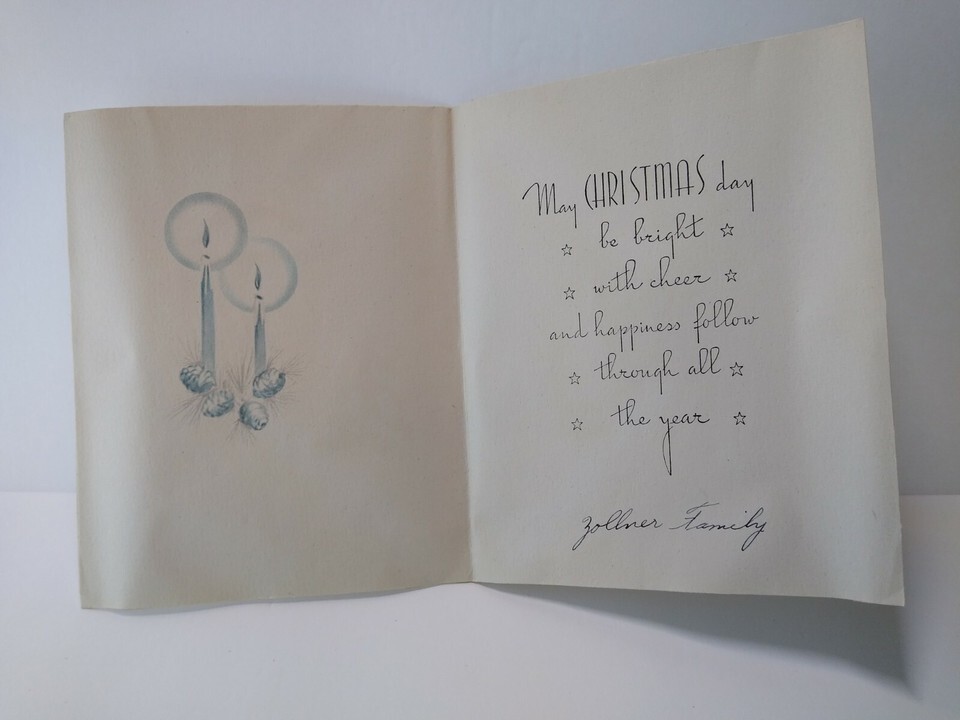 May CHRISTMAS day
☆ be bright ☆
☆ with cheer ☆
and happiness follow
☆ through all ☆
☆ the year ☆
Zollner Family